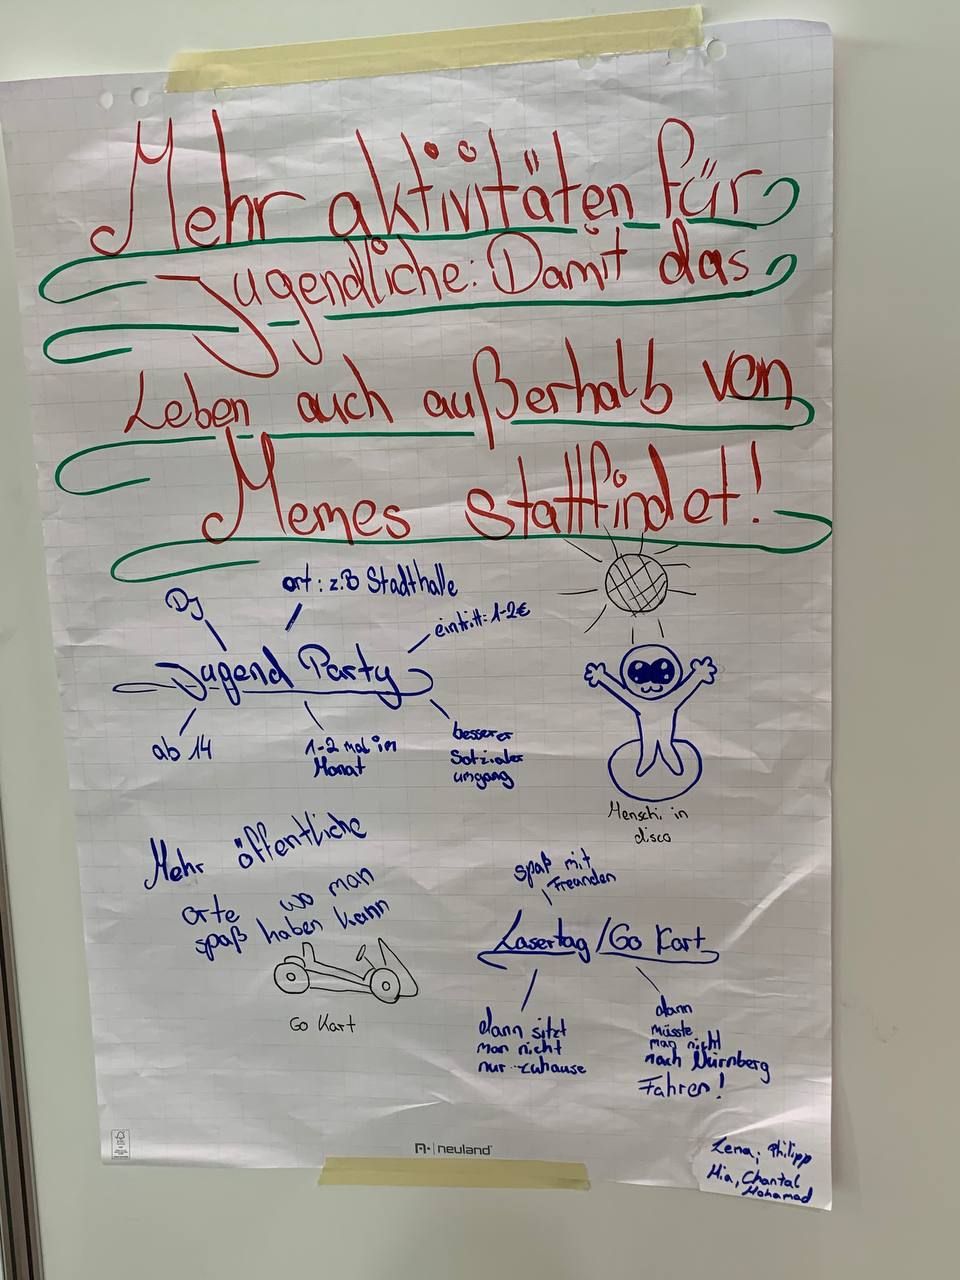 Mehr aktivitäten für
Jugendliche: Damit das
Leben auch außerhalb von
Memes stattfindet!
DJ
ort: z.B Stadthalle
eintritt: 1-2€
Jugend Party
ab 14
1-2 mal im
Monat
besserer
Sotzialer
umgang
Menschi in
disco
Mehr öffentliche
orte wo man
spaß haben kann
Go Kart
spaß mit
Freunden
Lasertag / Go Kart
dann sitzt
man nicht
nur zuhause
dann
müsste
man nicht
nach Nürnberg
Fahren!
neuland
Lena, Philipp
Mia, Chantal
Mohamad